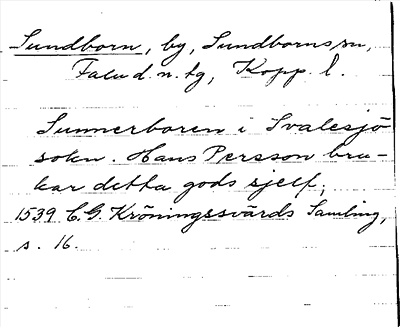 Sundborn, by, Sundborns sn,
Falu d. n. tg, Kopp. l.
Sunnerboren i Svalesjö
sokn. Hans Persson bru-
kar detta gods sjelf;
1539 C. G. Kröningssvärds Samling,
s. 16.